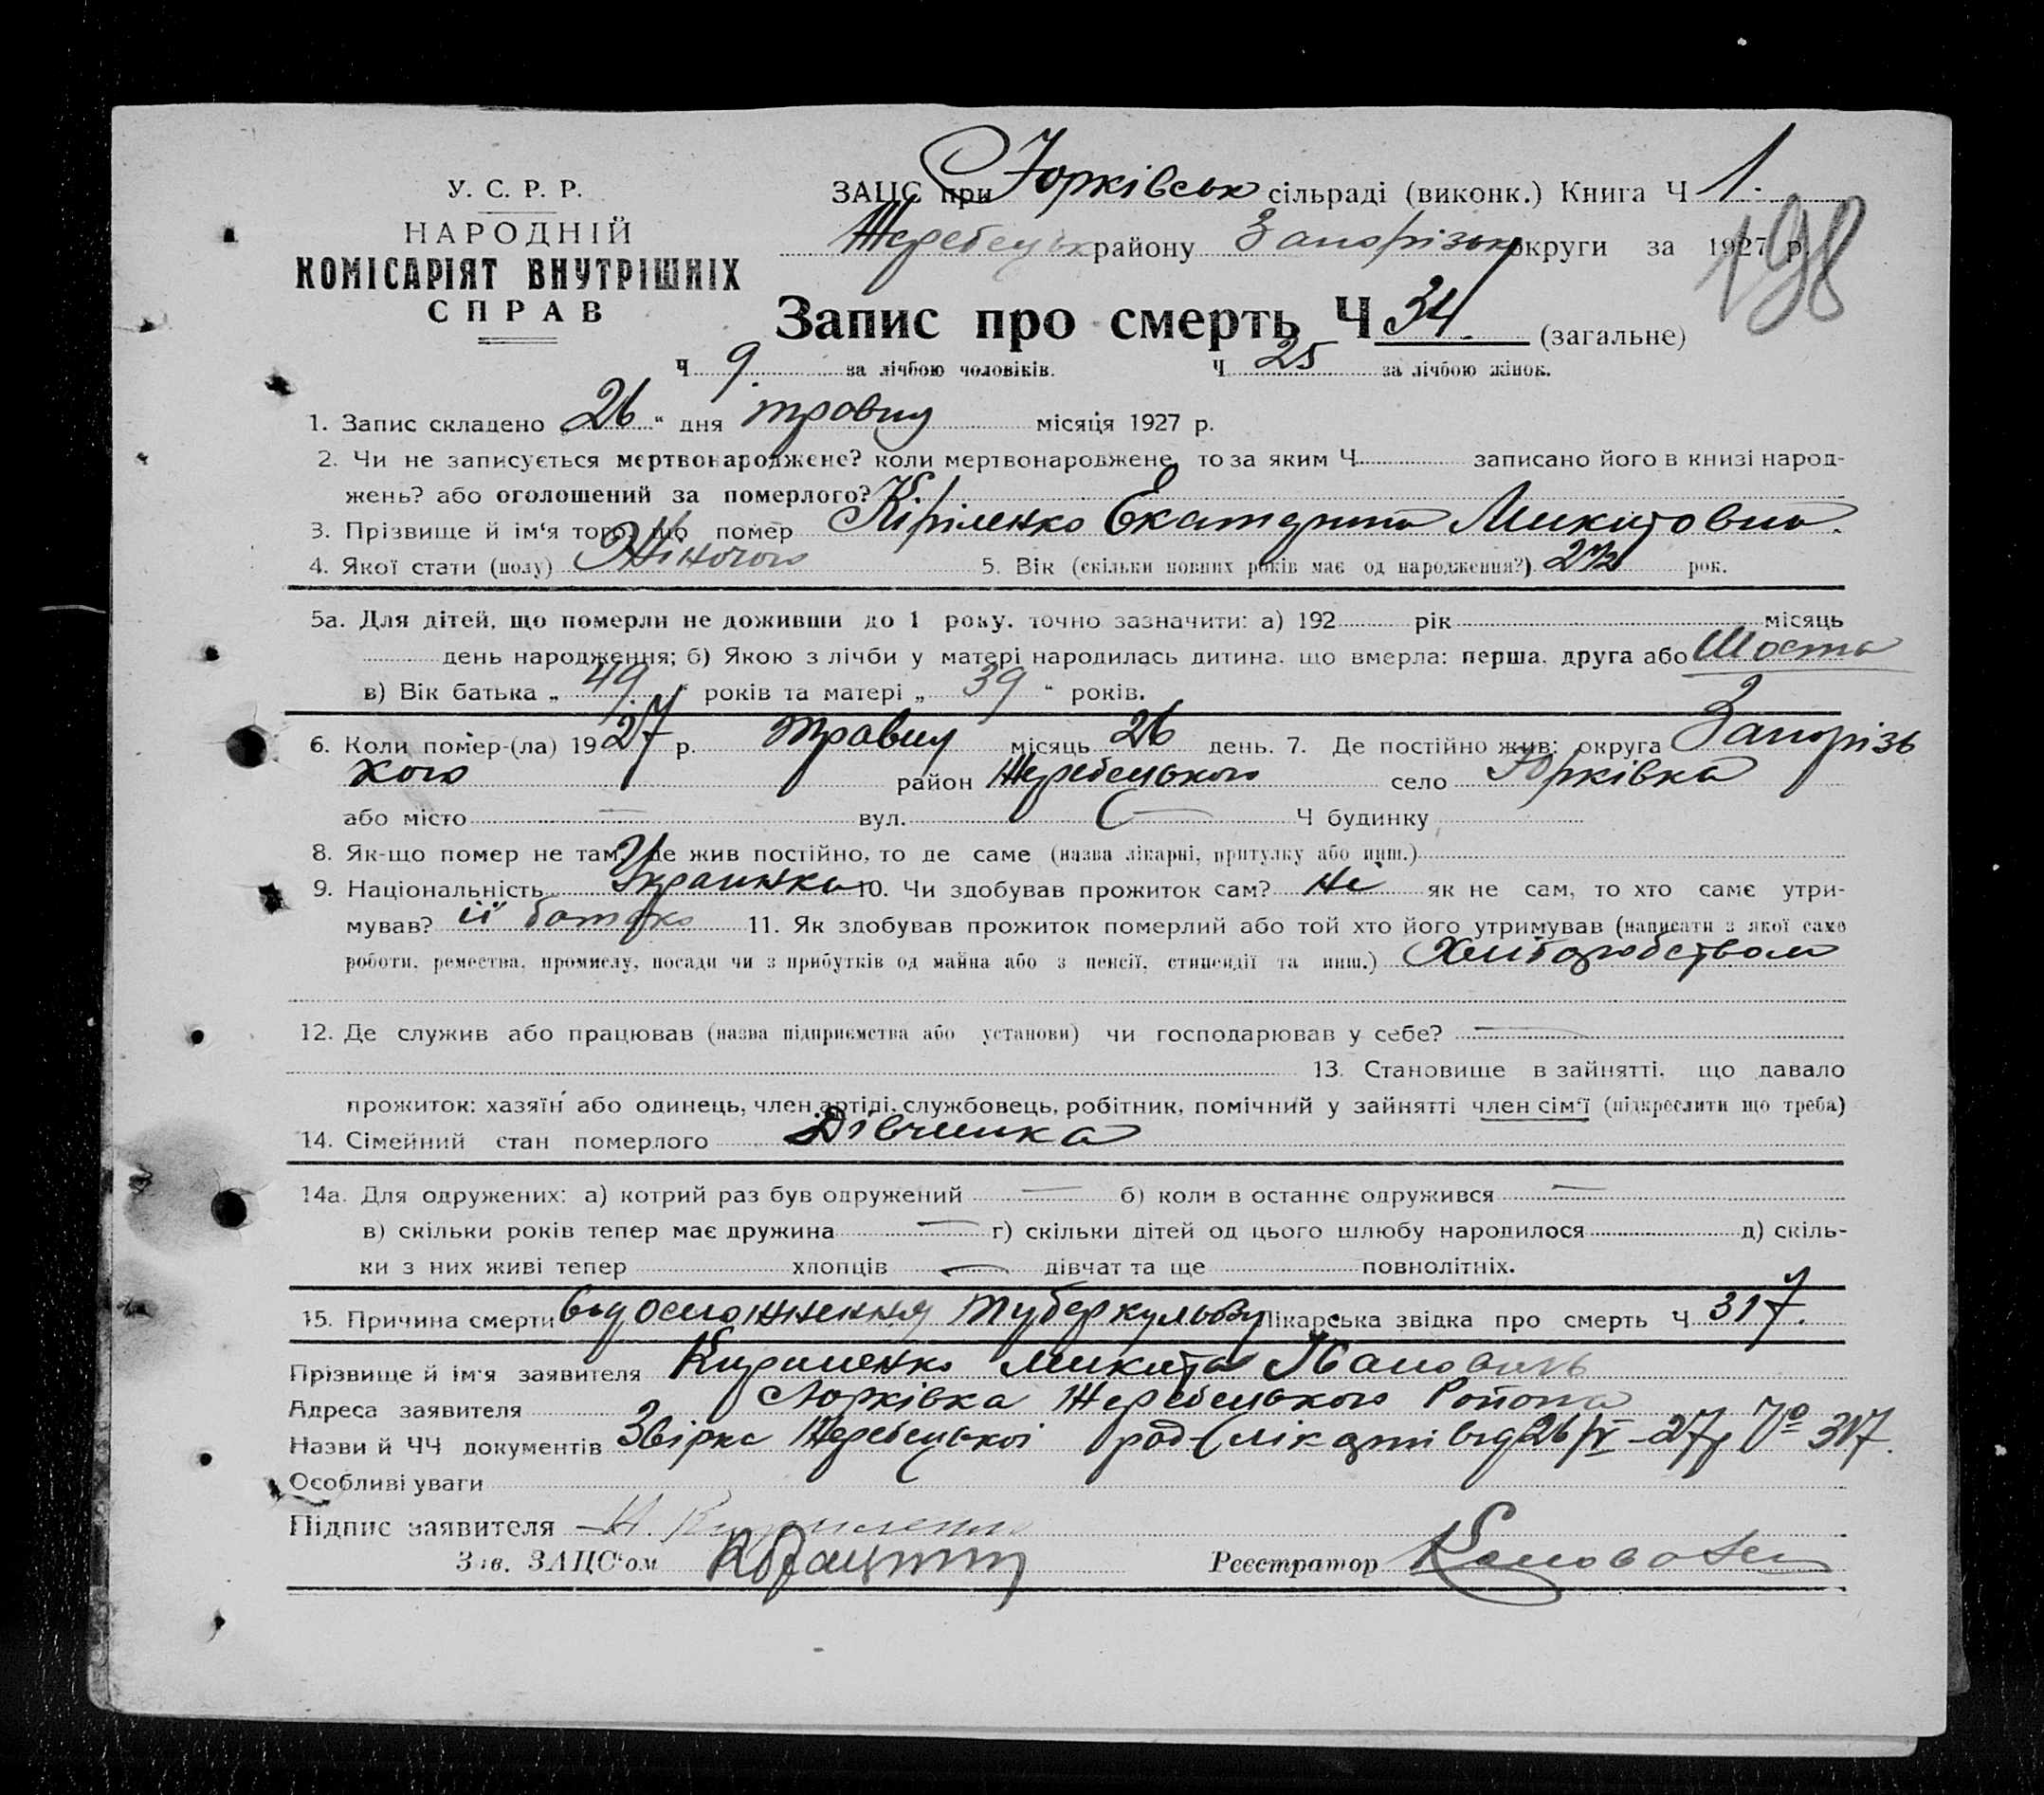 У. С. Р. Р.
НАРОДНІЙ
КОМІСАРІЯТ ВНУТРІШНІХ
СПРАВ
ЗАЦС при Юрківськ сільраді (виконк.) Книга Ч 1.
Жеребецьк району Запорізьк округи за 1927 р.
198
Запис про смерть Ч 34. (загальне)
Ч 9. за лічбою чоловіків. Ч 25 за лічбою жінок.
1. Запис складено „26“ дня травця місяця 1927 р.
2. Чи не записується мертвонароджене? коли мертвонароджене, то за яким Ч записано його в книзі народ-
жень? або оголошений за померлого?
3. Прізвище й ім‘я того, що помер Кіріленко Екатерина Микитовна.
4. Якої стати (полу) Жіночого 5. Вік (скільки повних років має од народження?) 2 1/2 рок.
5а. Для дітей, що померли не доживши до 1 року. точно зазначити: а) 192 рік місяць
день народження; б) Якою з лічби у матері народилась дитина. що вмерла: перша. друга або Шоста
в) Вік батька „49“ років та матері „39“ років.
6. Коли помер-(ла) 1927 р. травця місяць 26 день. 7. Де постійно жив: округа Запорізь
кого район Жеребецького село Юрківка
або місто — вул. — Ч будинку
8. Як-що помер не там, де жив постійно, то де саме (назва лікарні, притулку або инш.)
9. Національність Украинка 10. Чи здобував прожиток сам? ні як не сам, то хто саме утри-
мував? її батько 11. Як здобував прожиток померлий або той хто його утримував (написати з якої саме
роботи, ремества, промислу, посади чи з прибутків од майна або з пенсії, стипендії та инш.) Хлиборобством
12. Де служив або працював (назва підприємства або установи) чи господарював у себе? —
13. Становище в зайнятті, що давало
прожиток: хазяїн або одинець, член артілі, службовець, робітник, помічний у зайнятті член сім‘ї (підкреслити що треба)
14. Сімейний стан померлого Дівчинка
14а. Для одружених: а) котрий раз був одружений — б) коли в останнє одружився —
в) скільки років тепер має дружина — г) скільки дітей од цього шлюбу народилося д) скіль-
ки з них живі тепер хлопців — дівчат та ще повнолітніх.
15. Причина смерти туберкульозу Лікарська звідка про смерть Ч 317.
Прізвище й ім‘я заявителя Кириленко Микита Іванович
Адреса заявителя Юрківка Жеребецького Района
Назви й ЧЧ документів Жеребецької 26/V-27р № 317.
Особливі уваги
Підпис заявителя Кириленко
Зав. ЗАЦС‘ом
Реєстратор